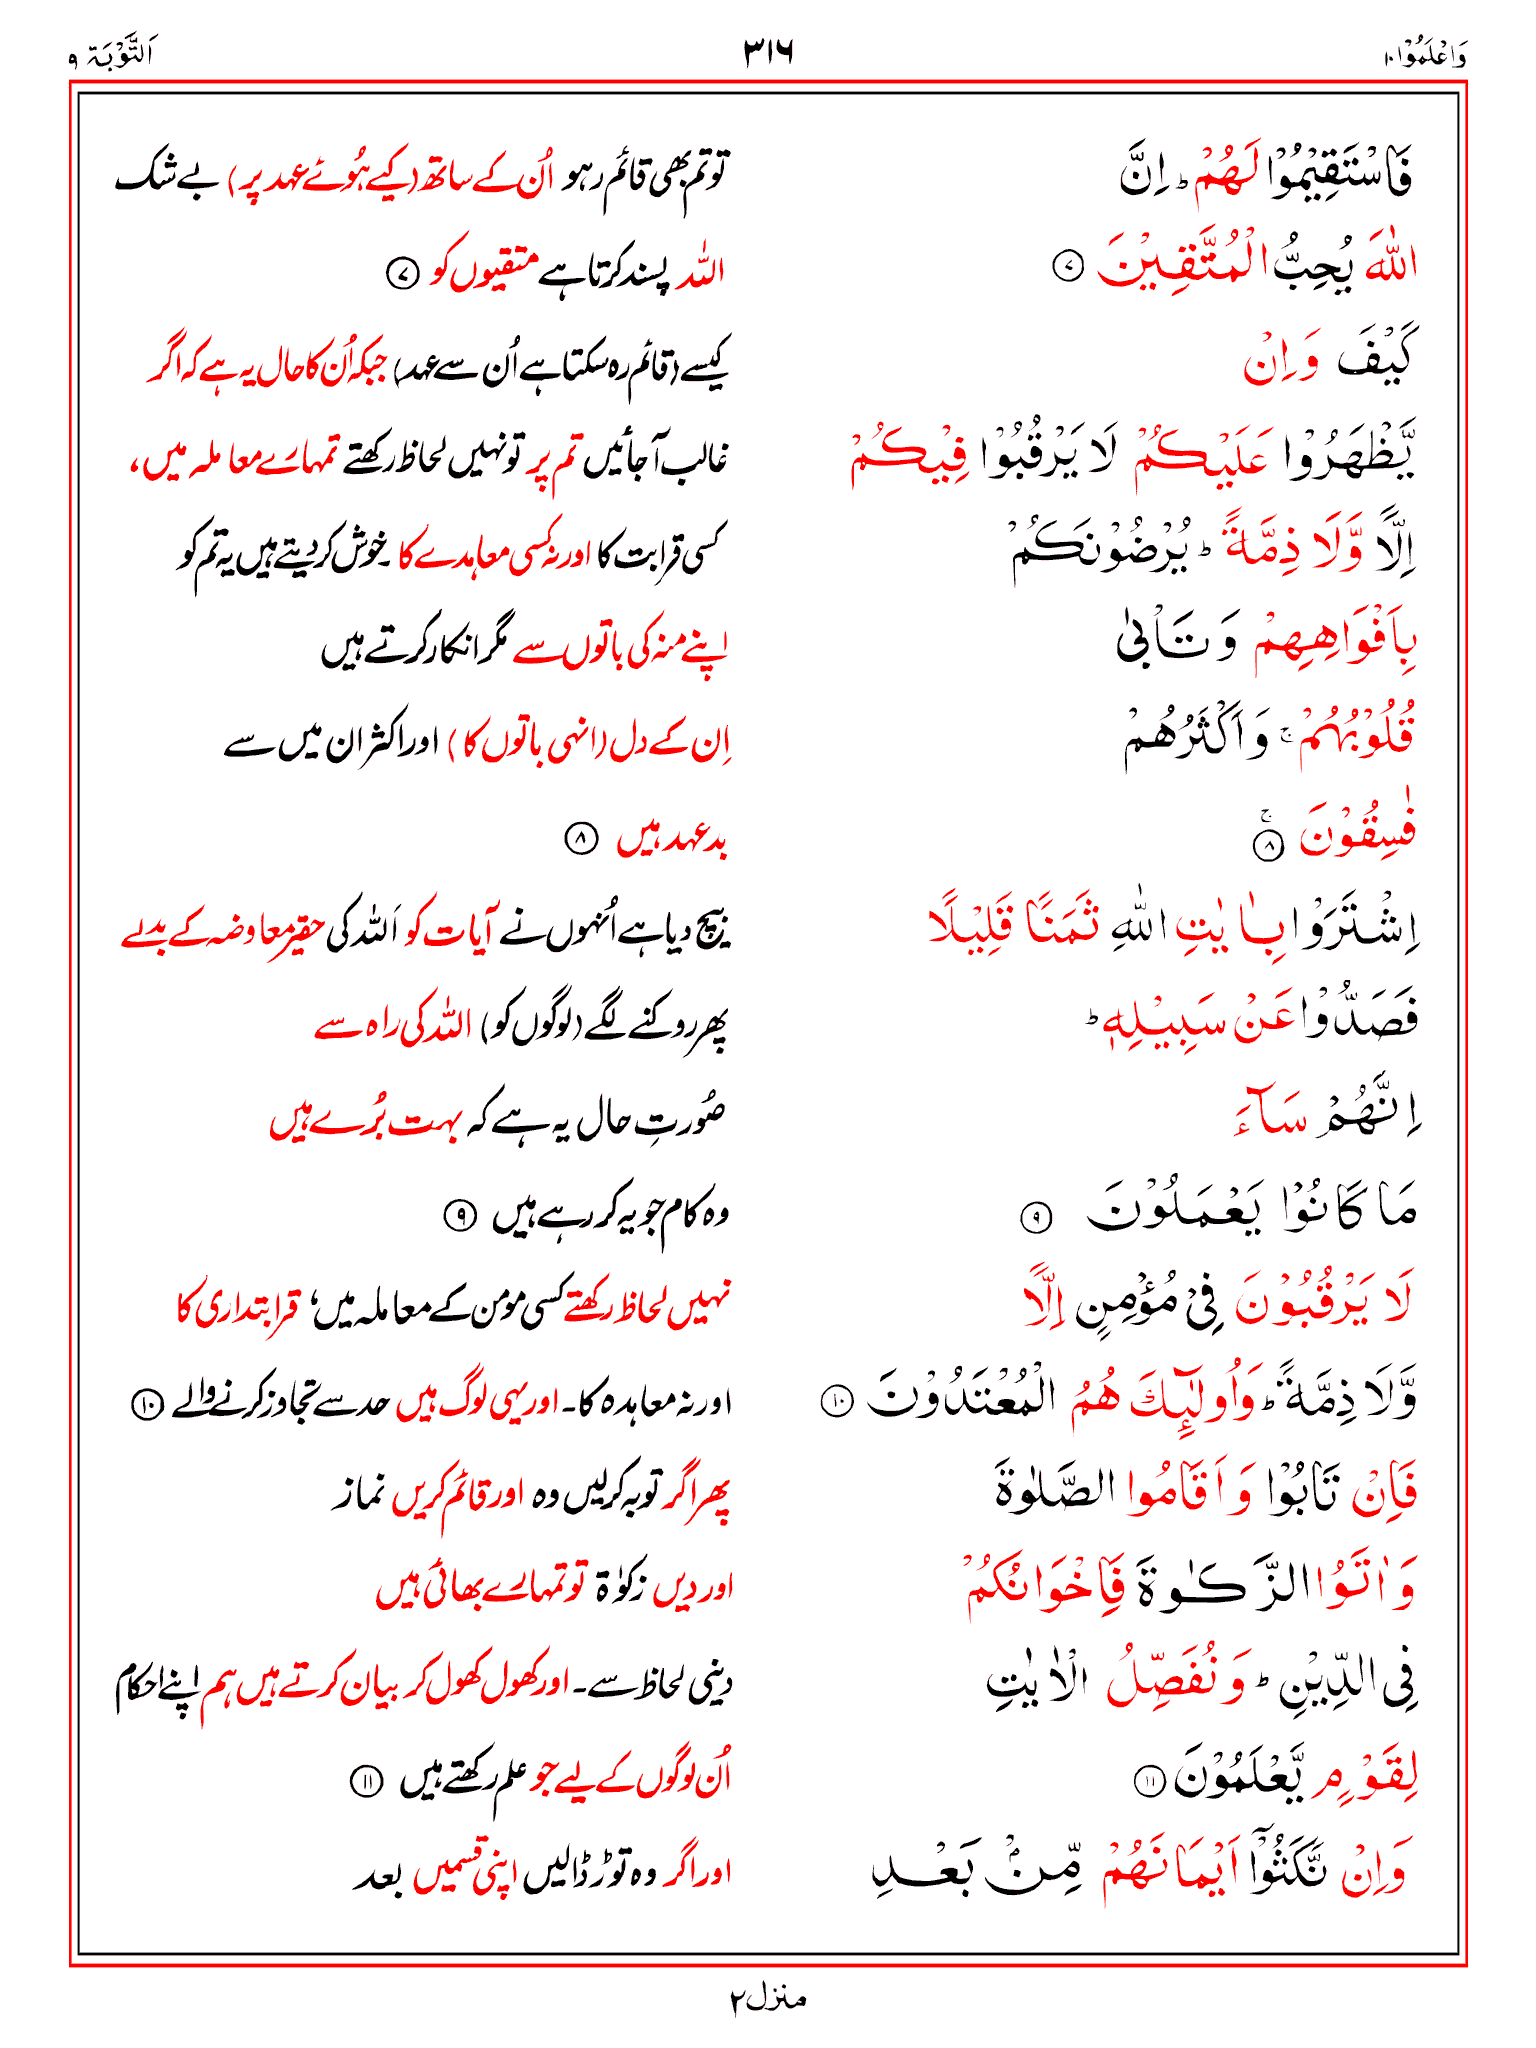 وَاعْلَمُوْا ۱۰
۳۱۶
اَلتَّوْبَة ۹
فَاسْتَقِيْمُوْا لَهُمْ ؕ اِنَّ
تو تم بھی قائم رہو اُن کے ساتھ (کیے ہُوئے عہد پر) بے شک
اللّٰهَ يُحِبُّ الْمُتَّقِيْنَ ۷
اللہ پسند کرتا ہے متقیوں کو ۷
كَيْفَ وَاِنْ
کیسے (قائم رہ سکتا ہے اُن سے عہد) جبکہ اُن کا حال یہ ہے کہ اگر
يَّظْهَرُوْا عَلَيْكُمْ لَا يَرْقُبُوْا فِيْكُمْ
غالب آ جائیں تم پر تو نہیں لحاظ رکھتے تمہارے معاملہ میں،
اِلًّا وَّلَا ذِمَّةً ؕ يُرْضُوْنَكُمْ
کسی قرابت کا اور نہ کسی معاہدے کا ۔ خوش کر دیتے ہیں یہ تم کو
بِاَفْوَاهِهِمْ وَتَاْبٰى
اپنے منہ کی باتوں سے مگر انکار کرتے ہیں
قُلُوْبُهُمْ ۚ وَاَكْثَرُهُمْ
اِن کے دل (انہی باتوں کا) اور اکثر ان میں سے
فٰسِقُوْنَ ۚ ۸
بد عہد ہیں ۸
اِشْتَرَوْا بِاٰيٰتِ اللّٰهِ ثَمَنًا قَلِيْلًا
بیچ دیا ہے اُنہوں نے آیات کو اَللہ کی حقیر معاوضہ کے بدلے
فَصَدُّوْا عَنْ سَبِيْلِهٖ ؕ
پھر روکنے لگے (لوگوں کو) اللہ کی راہ سے
اِنَّهُمْ سَآءَ
صُورتِ حال یہ ہے کہ بہت بُرے ہیں
مَا كَانُوْا يَعْمَلُوْنَ ۹
وہ کام جو یہ کر رہے ہیں ۹
لَا يَرْقُبُوْنَ فِيْ مُؤْمِنٍ اِلًّا
نہیں لحاظ رکھتے کسی مومن کے معاملہ میں، قرابتداری کا
وَّلَا ذِمَّةً ؕ وَاُولٰٓئِكَ هُمُ الْمُعْتَدُوْنَ ۱۰
اور نہ معاہدہ کا۔ اور یہی لوگ ہیں حد سے تجاوز کرنے والے ۱۰
فَاِنْ تَابُوْا وَاَقَامُوا الصَّلٰوةَ
پھر اگر توبہ کر لیں وہ اور قائم کریں نماز
وَاٰتَوُا الزَّكٰوةَ فَاِخْوَانُكُمْ
اور دیں زکوٰۃ تو تمہارے بھائی ہیں
فِي الدِّيْنِ ؕ وَنُفَصِّلُ الْاٰيٰتِ
دینی لحاظ سے۔ اور کھول کھول کر بیان کرتے ہیں ہم اپنے احکام
لِقَوْمٍ يَّعْلَمُوْنَ ۱۱
اُن لوگوں کے لیے جو علم رکھتے ہیں ۱۱
وَاِنْ نَّكَثُوْٓا اَيْمَانَهُمْ مِّنْۢ بَعْدِ
اور اگر وہ توڑ ڈالیں اپنی قسمیں بعد
منزل ۲